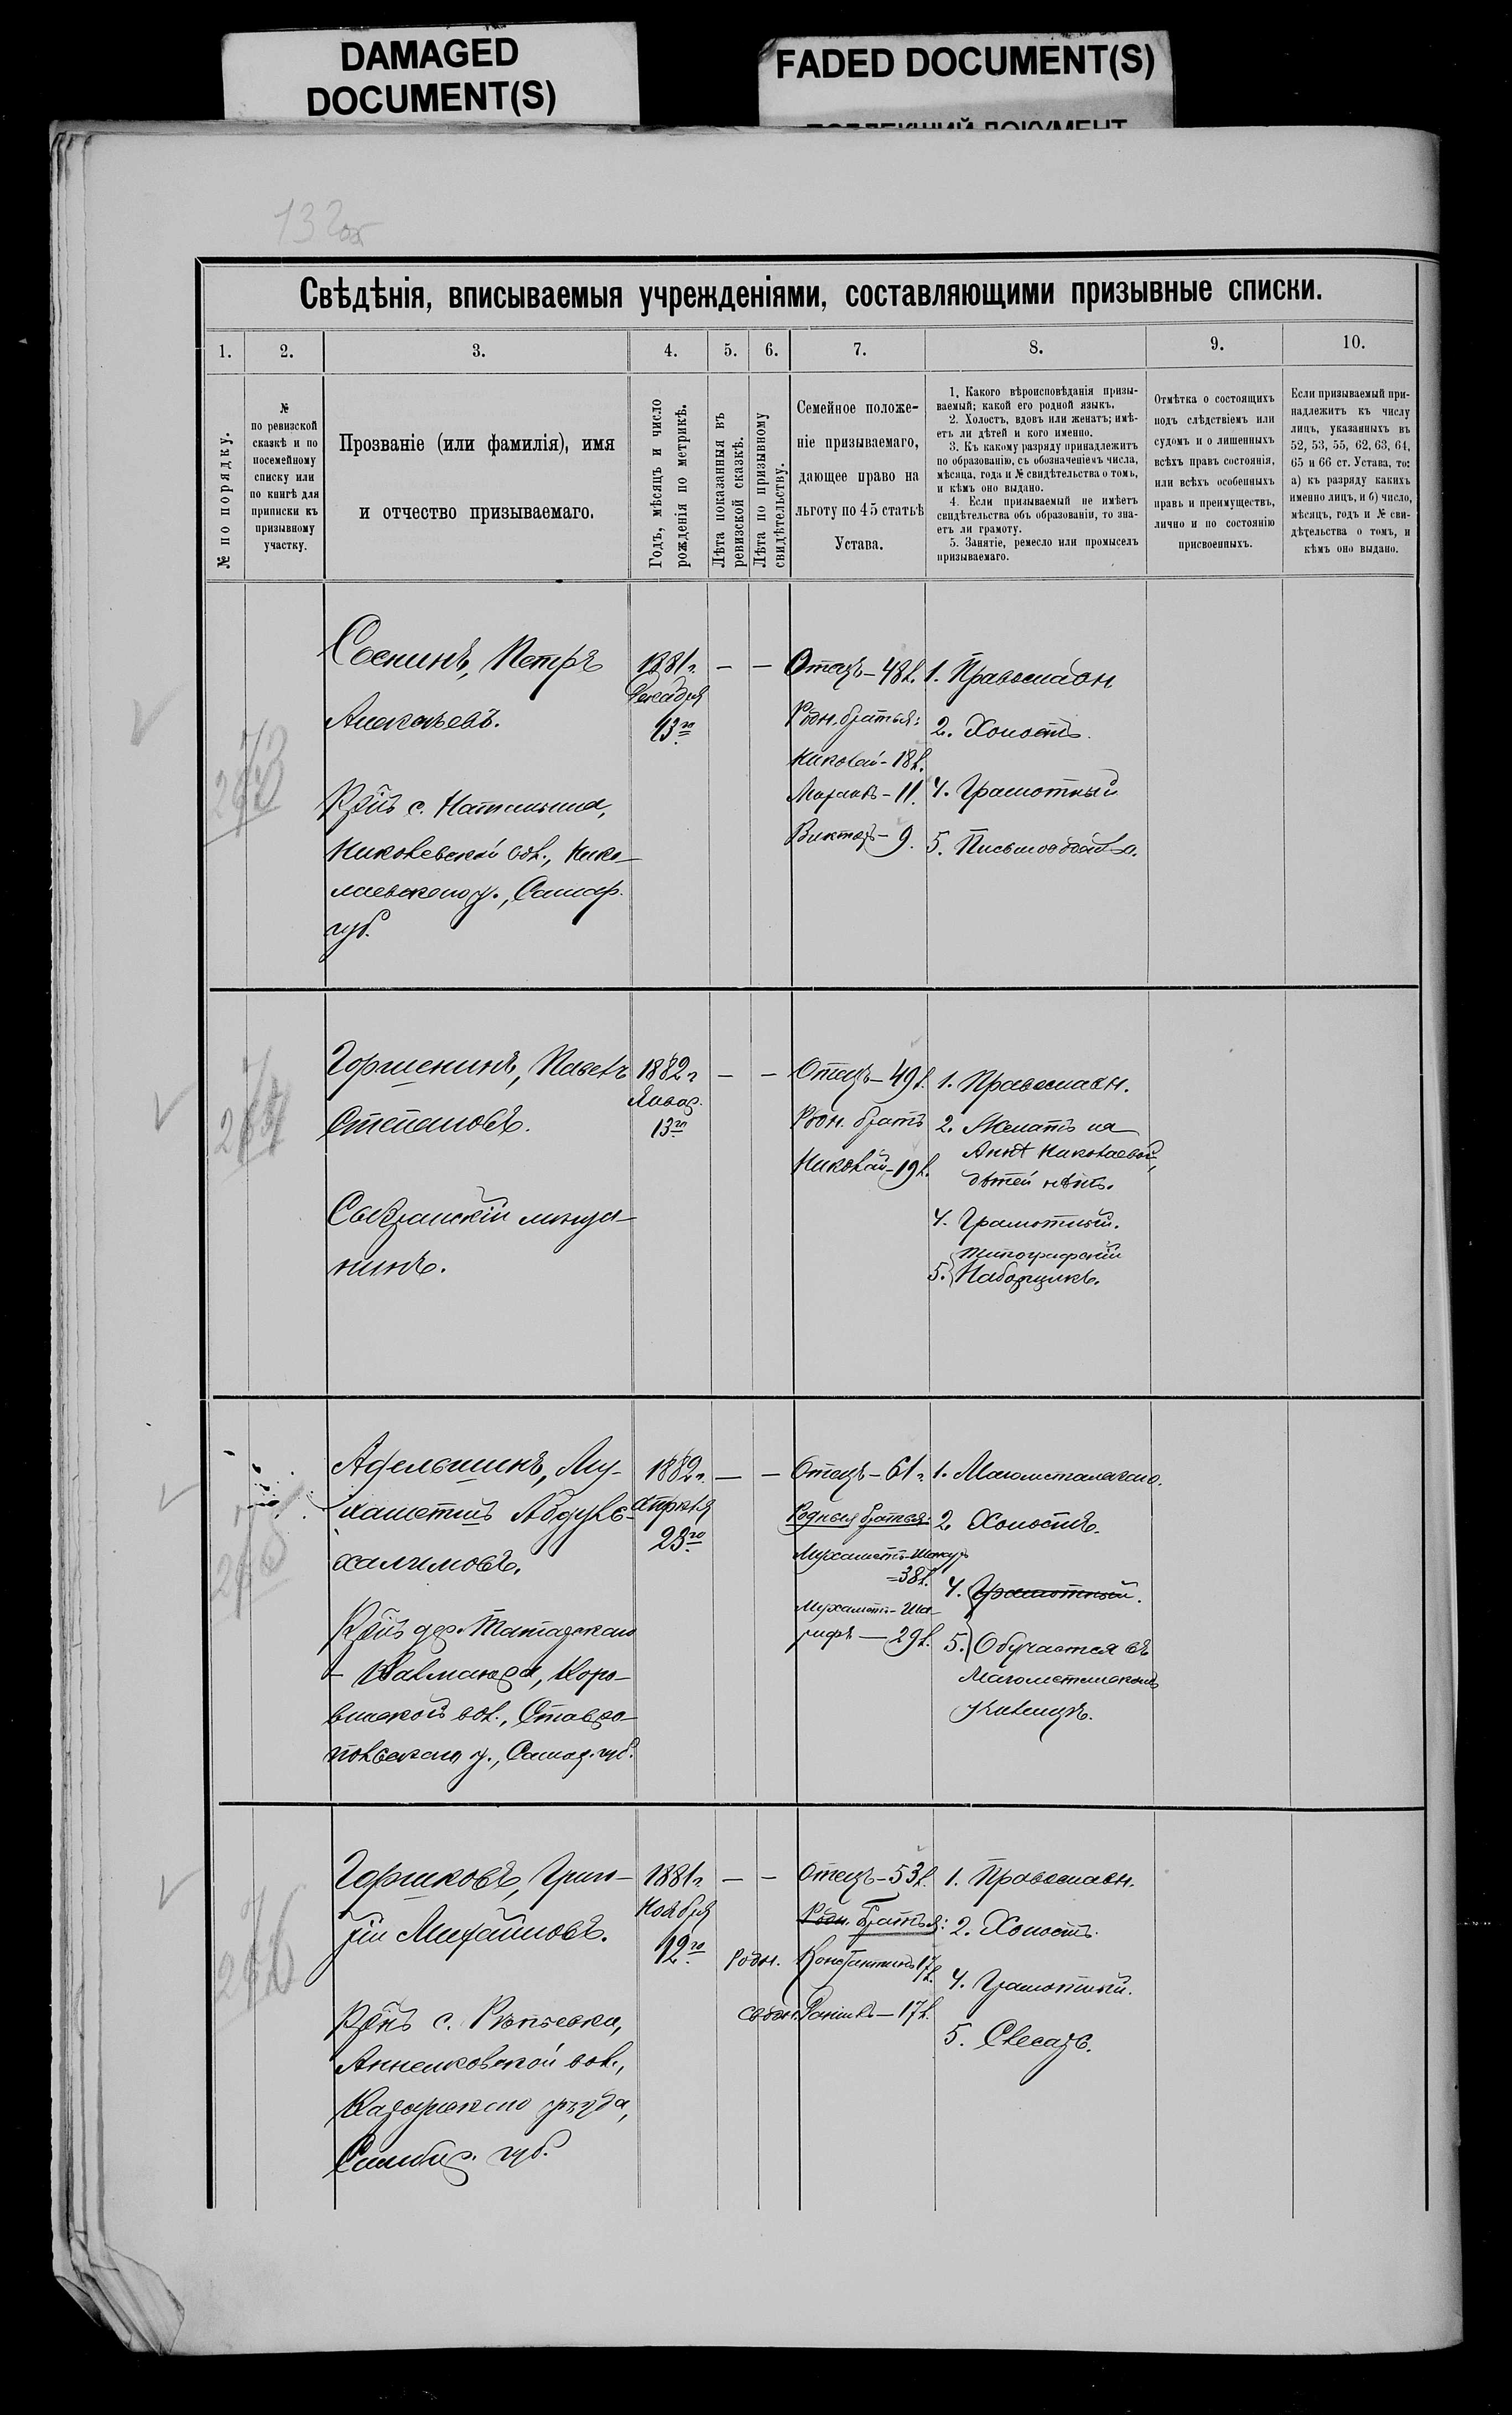 DAMAGED
DOCUMENT(S)
FADED DOCUMENT(S)
132об
Свѣдѣнія, вписываемыя учрежденіями, составляющими призывные списки.
1.
2.
3.
4.
5.
6.
7.
8.
9.
10.
№ по порядку.
№
по ревизской
сказкѣ и по
посемейному
списку или
по книгѣ для
приписки къ
призывному
участку.
Прозваніе (или фамилія), имя
и отчество призываемаго.
Годъ, мѣсяцъ и число
рожденія по метрикѣ.
Лѣта показанныя въ
ревизской сказкѣ.
Лѣта по призывному
свидѣтельству.
Семейное положе-
ніе призываемаго,
дающее право на
льготу по 45 статьѣ
Устава.
1. Какого вѣроисповѣданія призы-
ваемый; какой его родной языкъ.
2. Холостъ, вдовъ или женатъ; имѣ-
етъ ли дѣтей и кого именно.
3. Къ какому разряду принадлежитъ
по образованію, съ обозначеніемъ числа,
мѣсяца, года и № свидѣтельства о томъ,
и кѣмъ оно выдано.
4. Если призываемый не имѣетъ
свидѣтельства объ образованіи, то зна-
етъ ли грамоту.
5. Занятіе, ремесло или промыселъ
призываемаго.
Отмѣтка о состоящихъ
подъ слѣдствіемъ или
судомъ и о лишенныхъ
всѣхъ правъ состоянія,
или всѣхъ особенныхъ
правъ и преимуществъ,
лично и по состоянію
присвоенныхъ.
Если призываемый при-
надлежитъ къ числу
лицъ, указанныхъ въ
52, 53, 55, 62, 63, 64,
65 и 66 ст. Устава, то:
а) къ разряду какихъ
именно лицъ, и б) число,
мѣсяцъ, годъ и № сви-
дѣтельства о томъ, и
кѣмъ оно выдано.
Соснинъ, Петръ
Алексѣевъ.
Кр-нъ с. Наталь­ина,
Николаевской вол., Нико-
лаевскаго у., Самар.
губ.
1881г.
Декабря
13го
— —
Отецъ - 48 л.
Родн. братья:
Николай - 18 л.
- 11.
Викторъ - 9.
1. Православн
2. Холостъ.
4. Грамотный
5. Письмоводство.
Горшенинъ, Павелъ
Степановъ.
Сызранскій мѣща-
нинъ.
1882г
Январ.
13го
— —
Отецъ - 49 л.
Родн. братъ
Николай - 19 л.
1. Православн.
2. Женатъ на
Аннѣ Николаевой,
дѣтей нѣтъ.
4. Грамотный.
5. Типографскій
Наборщикъ.
Адельшинъ, Му-
хаметъ Абдулъ-
халимовъ.
Кр-нъ дер. Татарскаго
Калмаюра,
вол., Ставро-
польскаго у., Самар. губ.
1882г.
Апрѣля
23го
— —
Отецъ - 61 г.
Родные братья:
Мухаметъ-
=38 л.
Мухаметъ-Ша-
рифъ — 29 л.
1. Магометанскаго.
2. Холостъ.
4. Грамотный.
5. Обучается въ
Магометанскомъ
училищѣ.
Горшковъ, Григо-
рій Михайловъ.
Кр-нъ с. Рѣпьевки,
Анненковской вол.,
Карсунскаго уѣзда,
Симбир. губ.
1881г.
Ноября
12го
— —
Отецъ - 53 л.
Родн. братья:
Родн. Константинъ 17 л.
Сводн. Данилъ — 17 л.
1. Православн.
2. Холостъ.
4. Грамотный.
5. Слесарь.